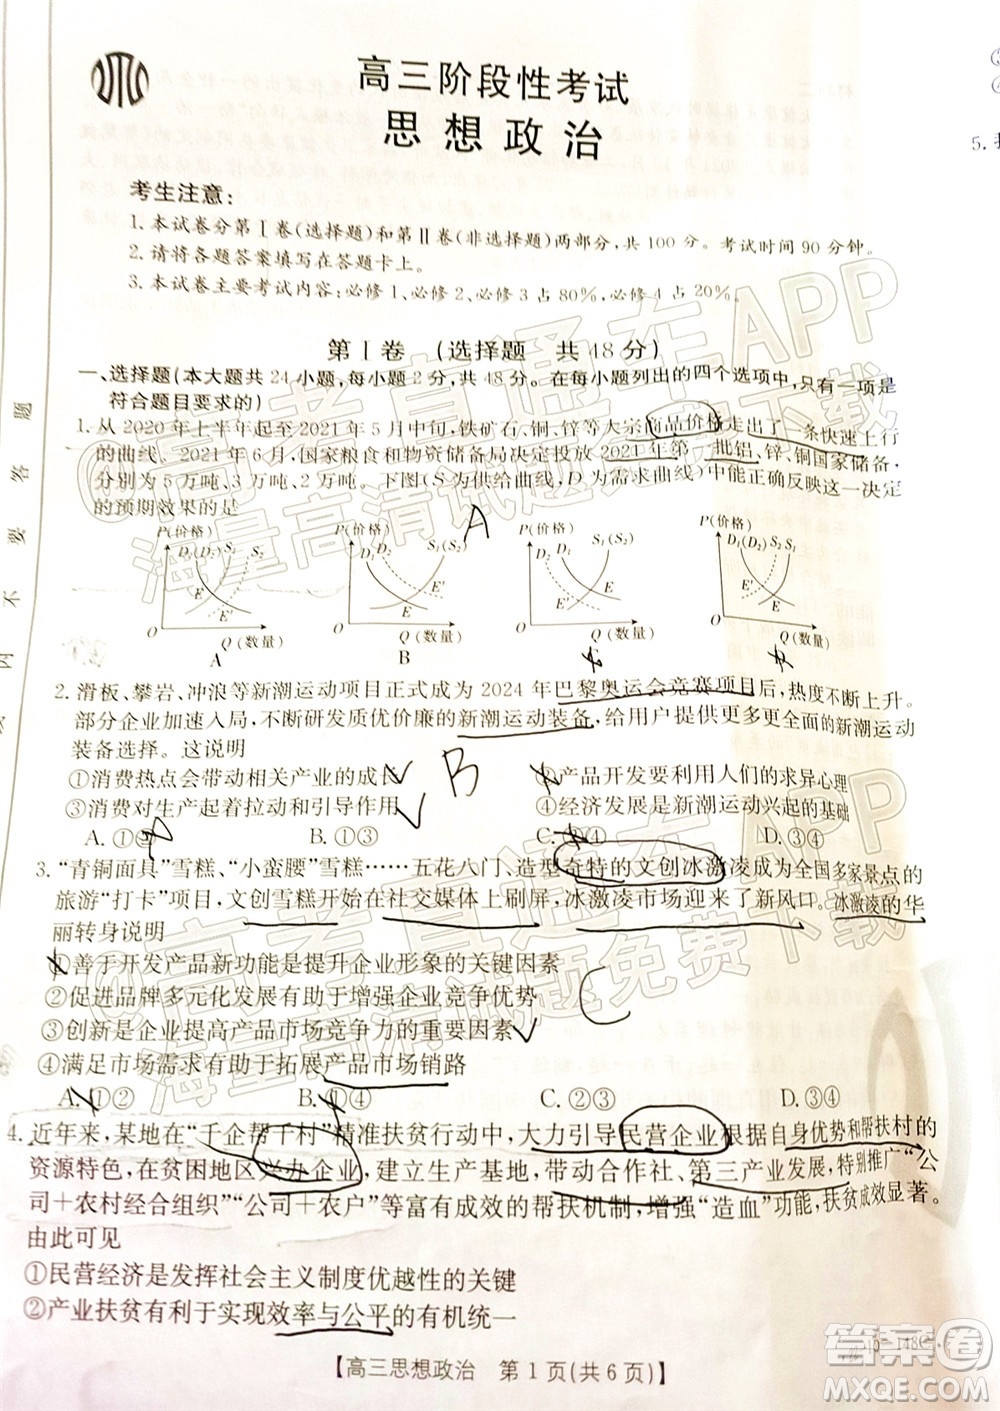 高三阶段性考试
思想政治
考生注意:
1. 本试卷分第Ⅰ卷(选择题)和第Ⅱ卷(非选择题)两部分,共 100 分。考试时间 90 分钟。
2. 请将各题答案填写在答题卡上。
3. 本试卷主要考试内容:必修 1、必修 2、必修 3 占 80%,必修 4 占 20%。
第Ⅰ卷 (选择题 共 48 分)
一、选择题(本大题共 24 小题,每小题 2 分,共 48 分。在每小题列出的四个选项中,只有一项是
符合题目要求的)
1. 从 2020 年上半年起至 2021 年 5 月中旬,铁矿石、铜、锌等大宗商品价格走出了一条快速上升
的曲线。2021 年 6 月,国家粮食和物资储备局决定投放 2021 年第一批铝、锌、铜国家储备,
分别为 5 万吨、3 万吨、2 万吨。下图(S 为供给曲线,D 为需求曲线)能正确反映这一决定
的预期效果的是
A
P(价格) P(价格) P(价格) P(价格)
D₁(D₂) S₂ S₁ D₁ D₂ S₁(S₂) D₂ D₁ S₁(S₂) D₁(D₂) S₁ S₂
E E' E' E E E' E' E
O O O O
Q(数量) Q(数量) Q(数量) Q(数量)
A B
2. 滑板、攀岩、冲浪等新潮运动项目正式成为 2024 年巴黎奥运会竞赛项目后,热度不断上升。
部分企业加速入局,不断研发质优价廉的新潮运动装备,给用户提供更多更全面的新潮运动
装备选择。这说明
①消费热点会带动相关产业的成长 ②产品开发要利用人们的求异心理
③消费对生产起着拉动和引导作用 ④经济发展是新潮运动兴起的基础
B
A. ①② B. ①③ C. ②④ D. ③④
3. “青铜面具”雪糕、“小蛮腰”雪糕……五花八门、造型奇特的文创冰激凌成为全国多家景点的
旅游“打卡”项目,文创雪糕开始在社交媒体上刷屏,冰激凌市场迎来了新风口。冰激凌的华
丽转身说明
①善于开发产品新功能是提升企业形象的关键因素
②促进品牌多元化发展有助于增强企业竞争优势
③创新是企业提高产品市场竞争力的重要因素
④满足市场需求有助于拓展产品市场销路
C
A. ①② B. ①④ C. ②③ D. ③④
4. 近年来,某地在“千企帮千村”精准扶贫行动中,大力引导民营企业根据自身优势和帮扶村的
资源特色,在贫困地区兴办企业,建立生产基地,带动合作社、第三产业发展,特别推广“公
司+农村经合组织”“公司+农户”等富有成效的帮扶机制,增强“造血”功能,扶贫成效显著。
由此可见
①民营经济是发挥社会主义制度优越性的关键
②产业扶贫有利于实现效率与公平的有机统一
【高三思想政治 第 1 页(共 6 页)】
题
答
要
不
内
5.
@高考直通车APP
海量高清试题免费下载
@高考直通车APP
海量高清试题免费下载
答案卷
MXQE.COM